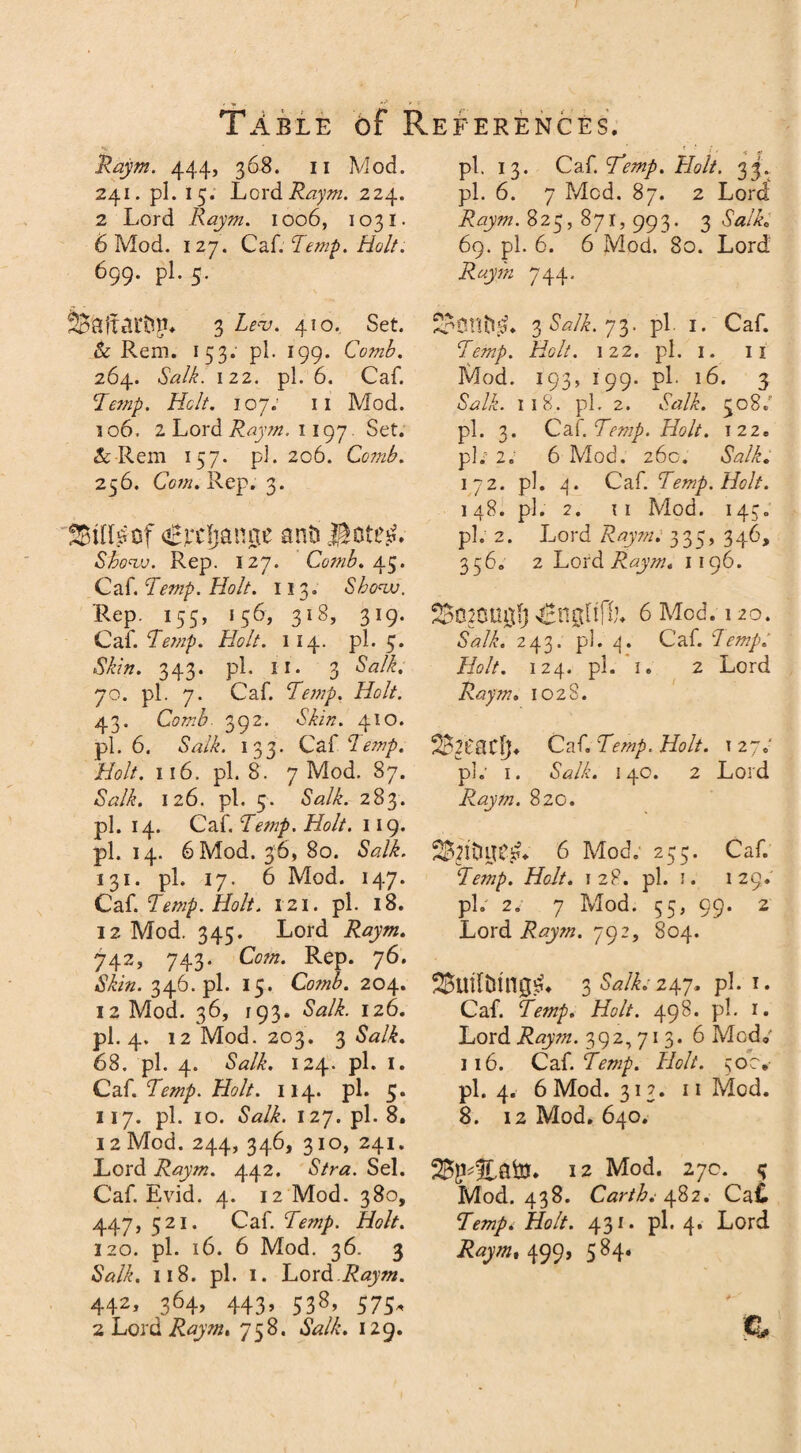 TABLE of REFERENCES.
Raym. 444, 368. 11 Mod.
241. pl. 15. Lord Raym. 224.
2 Lord Raym. 1006, 1031.
6 Mod. 127. Caſ. Temp. Holt.
699. pl. 5.
Baſtardy. 3 Lev. 410. Set.
& Rem. 153. pl. 199. Comb.
264. Salk. 122. pl. 6. Caſ.
Temp. Holt. 107. 11 Mod.
106. 2 Lord Raym. 1197. Set.
& Rem 157. pl. 206. Comb.
256. Com. Rep. 3.
Bills of Exchange and Notes.
Show. Rep. 127. Comb. 45.
Caſ. Temp. Holt. 113. Show.
Rep. 155, 156, 318, 319.
Caſ. Temp. Holt. 114. pl. 5.
Skin. 343. pl. 11. 3 Salk.
70. pl. 7. Caſ. Temp. Holt.
43. Comb. 392. Skin. 410.
pl. 6. Salk. 133. Caſ Temp.
Holt. 116. pl. 8. 7 Mod. 87.
Salk. 126. pl. 5. Salk. 283.
pl. 14. Caſ. Temp. Holt. 119.
pl. 14. 6 Mod. 36, 80. Salk.
131. pl. 17. 6 Mod. 147.
Caſ. Temp. Holt. 121. pl. 18.
12 Mod. 345. Lord Raym.
742, 743. Com. Rep. 76.
Skin. 346. pl. 15. Comb. 204.
12 Mod. 36, 193. Salk. 126.
pl. 4. 12 Mod. 203. 3 Salk.
68. pl. 4. Salk. 124. pl. 1.
Caſ. Temp. Holt. 114. pl. 5.
117. pl. 10. Salk. 127. pl. 8.
12 Mod. 244, 346, 310, 241.
Lord Raym. 442. Stra. Sel.
Caſ. Evid. 4. 12 Mod. 380,
447, 521. Caſ. Temp. Holt.
120. pl. 16. 6 Mod. 36. 3
Salk. 118. pl. 1. Lord Raym.
442, 364, 443, 538, 575.
2 Lord Raym. 758. Salk. 129.
pl. 13. Caſ. Temp. Holt. 33.
pl. 6. 7 Mod. 87. 2 Lord
Raym. 825, 871, 993. 3 Salk.
69. pl. 6. 6 Mod. 80. Lord
Raym 744.
Bonds. 3 Salk. 73. pl. 1. Caſ.
Temp. Holt. 122. pl. 1. 11
Mod. 193, 199. pl. 16. 3
Salk. 118. pl. 2. Salk. 508.
pl. 3. Caſ. Temp. Holt. 122.
pl. 2. 6 Mod. 260. Salk.
172. pl. 4. Caſ. Temp. Holt.
148. pl. 2. 11 Mod. 145.
pl. 2. Lord Raym. 335, 346,
356. 2 Lord Raym. 1196.
Borough Engliſh. 6 Mod. 120.
Salk. 243. pl. 4. Caſ. Temp.
Holt. 124. pl. 1. 2 Lord
Raym. 1028.
Breach. Caſ. Temp. Holt. 127.
pl. 1. Salk. 140. 2 Lord
Raym. 820.
Bridges. 6 Mod. 255. Caſ.
Temp. Holt. 128. pl. 1. 129.
pl. 2. 7 Mod. 55, 99. 2
Lord Raym. 792, 804.
Buildings. 3 Salk. 247. pl. 1.
Caſ. Temp. Holt. 498. pl. 1.
Lord Raym. 392, 713. 6 Mod.
116. Caſ. Temp. Holt. 500.
pl. 4. 6 Mod. 312. 11 Mod.
8. 12 Mod. 640.
By-Law. 12 Mod. 270. 5
Mod. 438. Carth. 482. Caſ.
Temp. Holt. 431. pl. 4. Lord
Raym. 499, 584.
C.